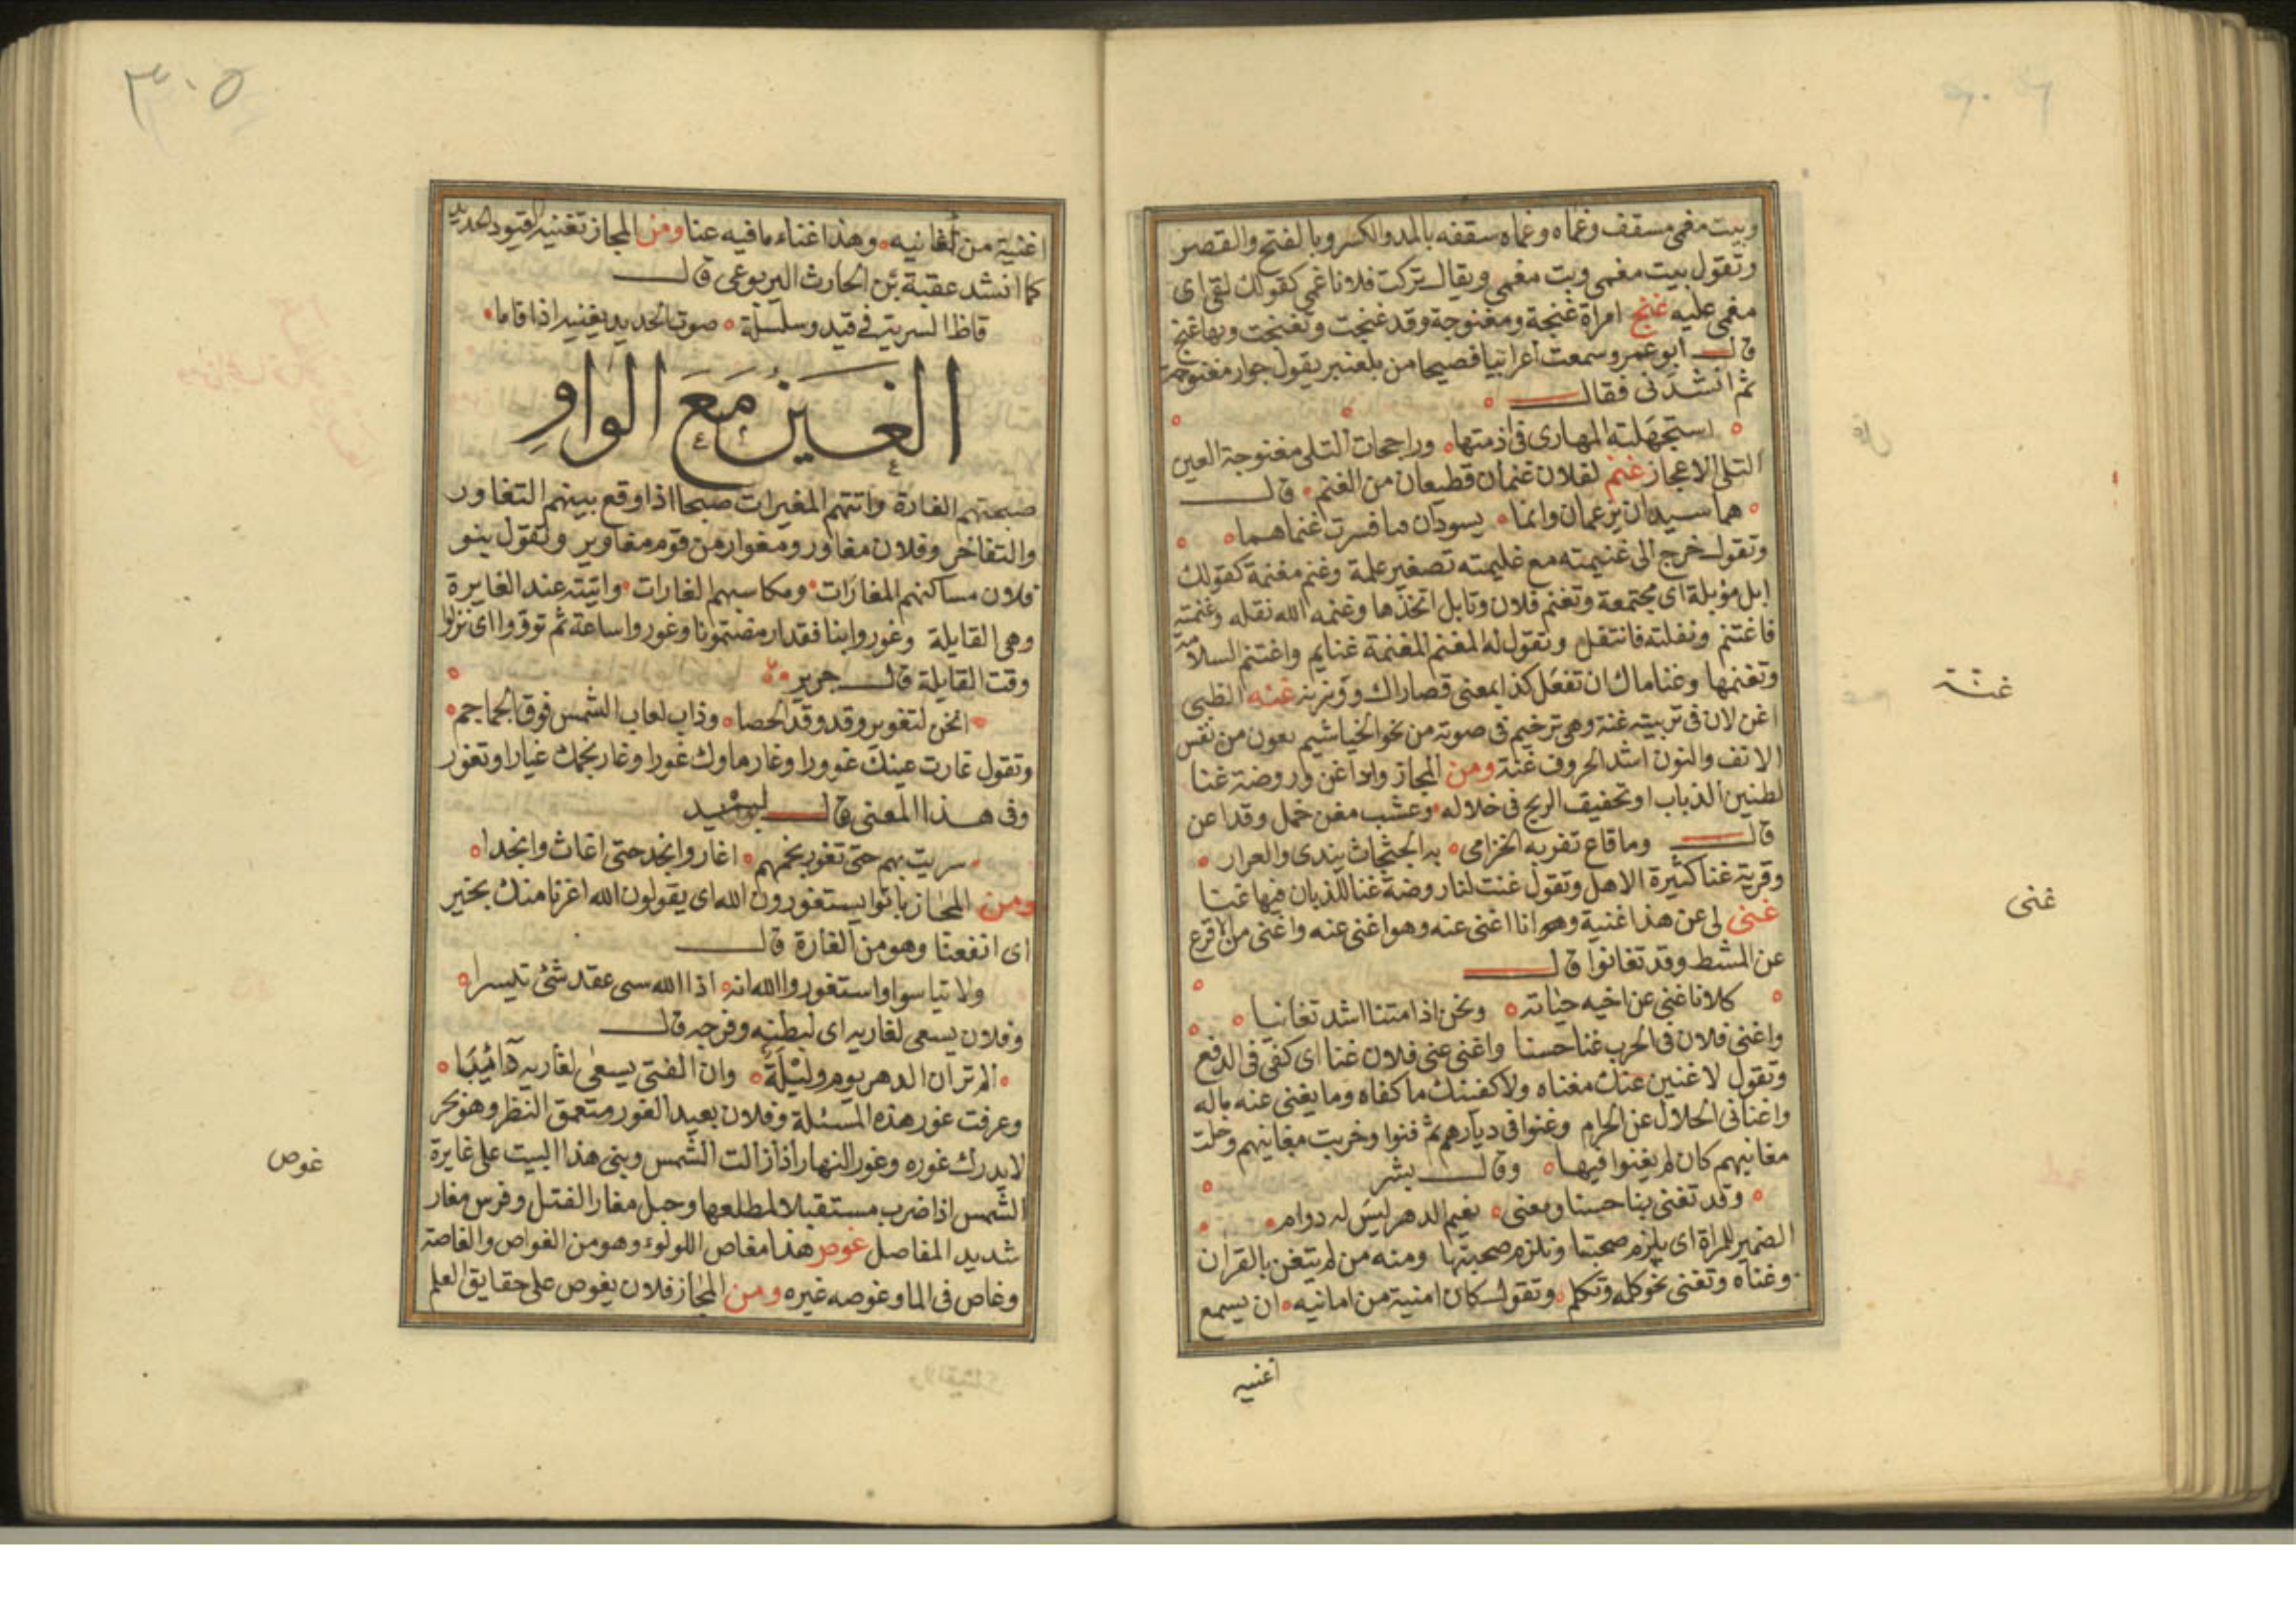 وبيت مغمى مسقف وغماه وغماه سقفه بالمد والكسر وبالفتح والقصر
وتقول بيت مغمى وبت مغمى ويقال تركت فلانا غمى كقولك لقى اى
مغمى عليه غنج امراة غنجة ومغنوجة وقد غنجت وتغنجت وبها غنج
قال ابو عمر وسمعت اعرابيا فصيحا من بلعنبر يقول جوار مغنوجة
ثم انشدنى فقال
يستجهلنه المهارى فى ازمتها وراجحات التلى مغنوجة العين
التلى الاعجاز غنم لفلان غنمان قطيعان من الغنم قال
هما سيدان يزعمان وانما يسودان ما فسرت غنماهما
وتقول خرج الى غنيمته مع غليمته تصغير علمة وغنم مغنمة كقولك
ابل مؤبلة اى مجتمعة وتغنم فلان وتابل اتخذها وغنمه الله نقله وغنمته
فاغتنم ونفلته فانتقل وتقول له المغنم المغنمة غنايم واغتنم السلامة
وتغنمها وغناماك ان تفعل كذا بمعنى قصاراك ووزنه غنه الظبى
اغن لان فى تربيته غنة وهى ترخيم فى صوته من نحو الخياشيم بعون من نفس
الانف والنون اشد الحروف غنة ومن المجاز واد اغن وروضة غنا
لطنين الذباب او تحفيف الريح فى خلاله وعشب مغن خمل وقد اعن
قال وما قاع تفربه الخزامى به الجثجاث يندى والعرار
وقرية غنا كثيرة الاهل وتقول غنت لنا روضة غنا للذبان فيها غنا
غنى لى عن هذا غنية وهو انا اغنى عنه وهو اغنى عنه واغنى من الاقرع
عن المشط وقد تغانوا قال
كلانا غنى عن اخيه حياته ونحن اذا متنا اشد تغانيا
واغنى فلان فى الحرب غنا حسنا واغنى عنى فلان غنا اى كفى فى الدفع
وتقول لاغنين عنك مغناه ولاكفنك ماكفاه وما يغنى عنه باله
واغنانى الحلال عن الحرام وغنوا فى ديارهم ثم فنوا وخربت مغانيهم وخلت
مغانيهم كان لم يغنوا فيها وقال بشر
وقد تغنى بنا حسنا ومغنى نعيم الدهر ليس له دوام
الضمير للمراة اى يلزم صحبتنا ونلزم صحبتها ومنه من لم يتغن بالقران
وغناه وتغنى نحو كله وتكلم وتقول كان امنية من امانيه ان يسمع
اغنيه
غنة
غنى
٣٠٥
اغنية من اغانيه وهذا غناء ما فيه عنا ومن المجاز تغنيه القيود الحديد
كما انشد عقبة بن الحارث اليربوعى قال
قاظ الشريت فى قيد وسلسلة صوت الحديد يغنيه اذا قاما
الغين مع الواو
صبحتهم الغارة واتتهم المغيرات صبحا اذا وقع بينهم التغاور
والتفاخر وفلان مغاور ومغوار من قوم مغاوير وتقول بنو
فلان مساكنهم المغارات ومكاسبهم الغارات واتيته عند الغايرة
وهى القايلة وغوروا بنا فقد ارمضتمونا وغوروا ساعة ثم توقوا اى نزلوا
وقت القايلة قال جرير
انخن لتغوير وقد وقد الحصا وذاب لعاب الشمس فوق الجماجم
وتقول غارت عينك غوورا وغار ماوك غورا وغار نجمك غيارا وتغور
وفى هذا المعنى قال لبيد
سريت بهم حتى تغور نجمهم اغار وانجد حتى اغاث وانجدا
ومن المجاز باتوا يستغورون الله اى يقولون الله اغرنا منك بخير
اى انفعنا وهو من الغارة قال
ولا تياسوا واستغوروا الله انه اذا الله سى عقد شئ تيسرا
وفلان يسعى لغاريه اى لبطنه وفرجه قال
الم تر ان الدهر يوم وليلة وان الفتى يسعى لغاريه دائبا
وعرفت غور هذه المسئلة وفلان بعيد الغور متعمق النظر وهو بحر
لا يدرك غوره وغور النهار اذا زالت الشمس وبنى هذا البيت على غايرة
الشمس اذا ضرب مستقبلا لمطلعها وحبل مغار الفتل وفرس مغار
شديد المفاصل غوص هذا مغاص اللولوء وهو من الغواص والغاصة
وغاص فى الما وغوصه غيره ومن المجاز فلان يغوص على حقايق العلم
غوص